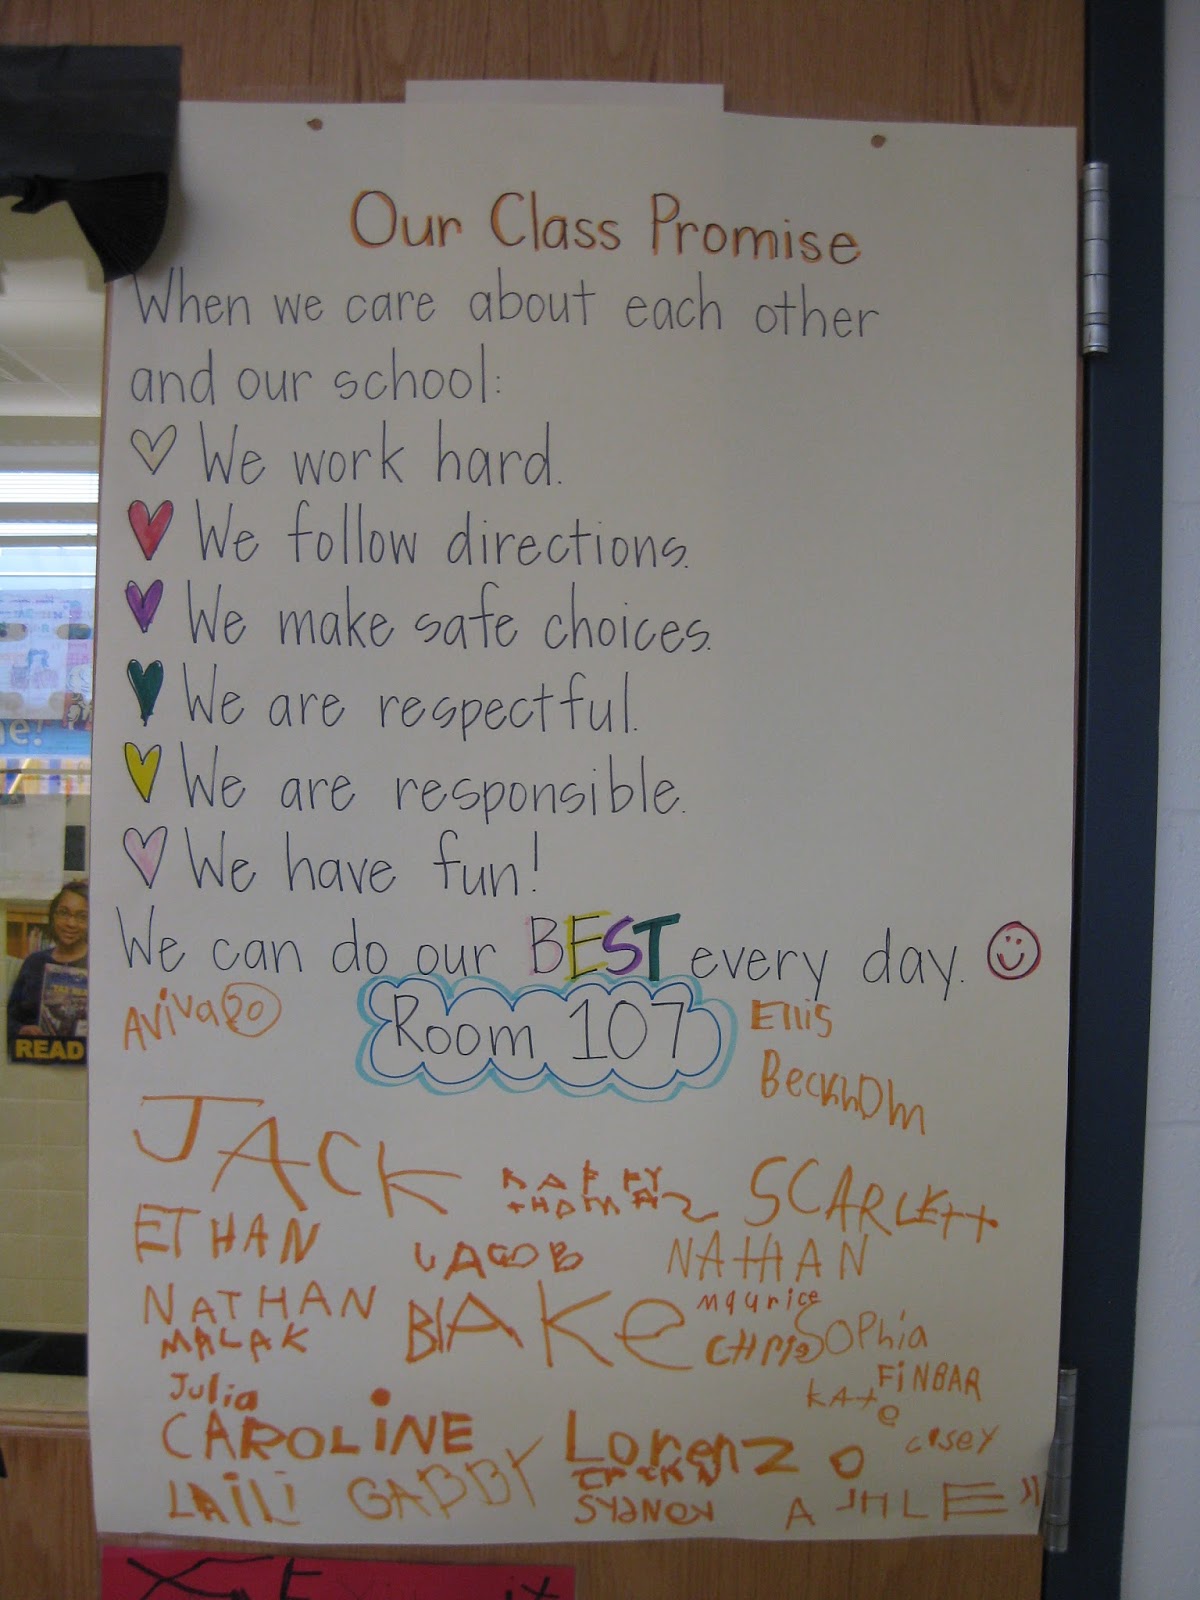 Our Class Promise
When we care about each other
and our school:
We work hard.
We follow directions.
We make safe choices.
We are respectful.
We are responsible.
We have fun!
We can do our BEST every day.
Aviva
Room 107
Ellis
Beckhom
JACK
SCARLEtt
ETHAN
JACOB
NATHAN
NATHAN
BlAKe
maurice
MALAK
CHRIS
SOPhia
Julia
FiNBAR
KAte
CAROLiNE
Lorenzo
casey
LAILI
GABBY
SYDNEY
ASHLEY
READ